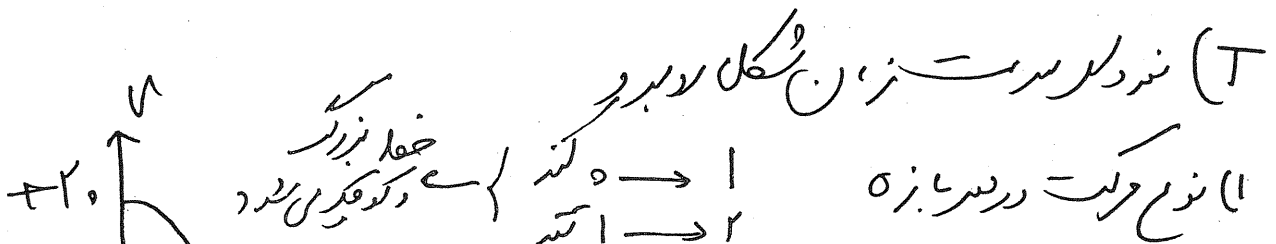 T) نمودار سرعت زمان شکل روبرو
۱) نوع حرکت در هر بازه ۱ → ۰ کند
۲ → ۱ تند
خط بزرگ و کوچک می شود
v
+۲۰